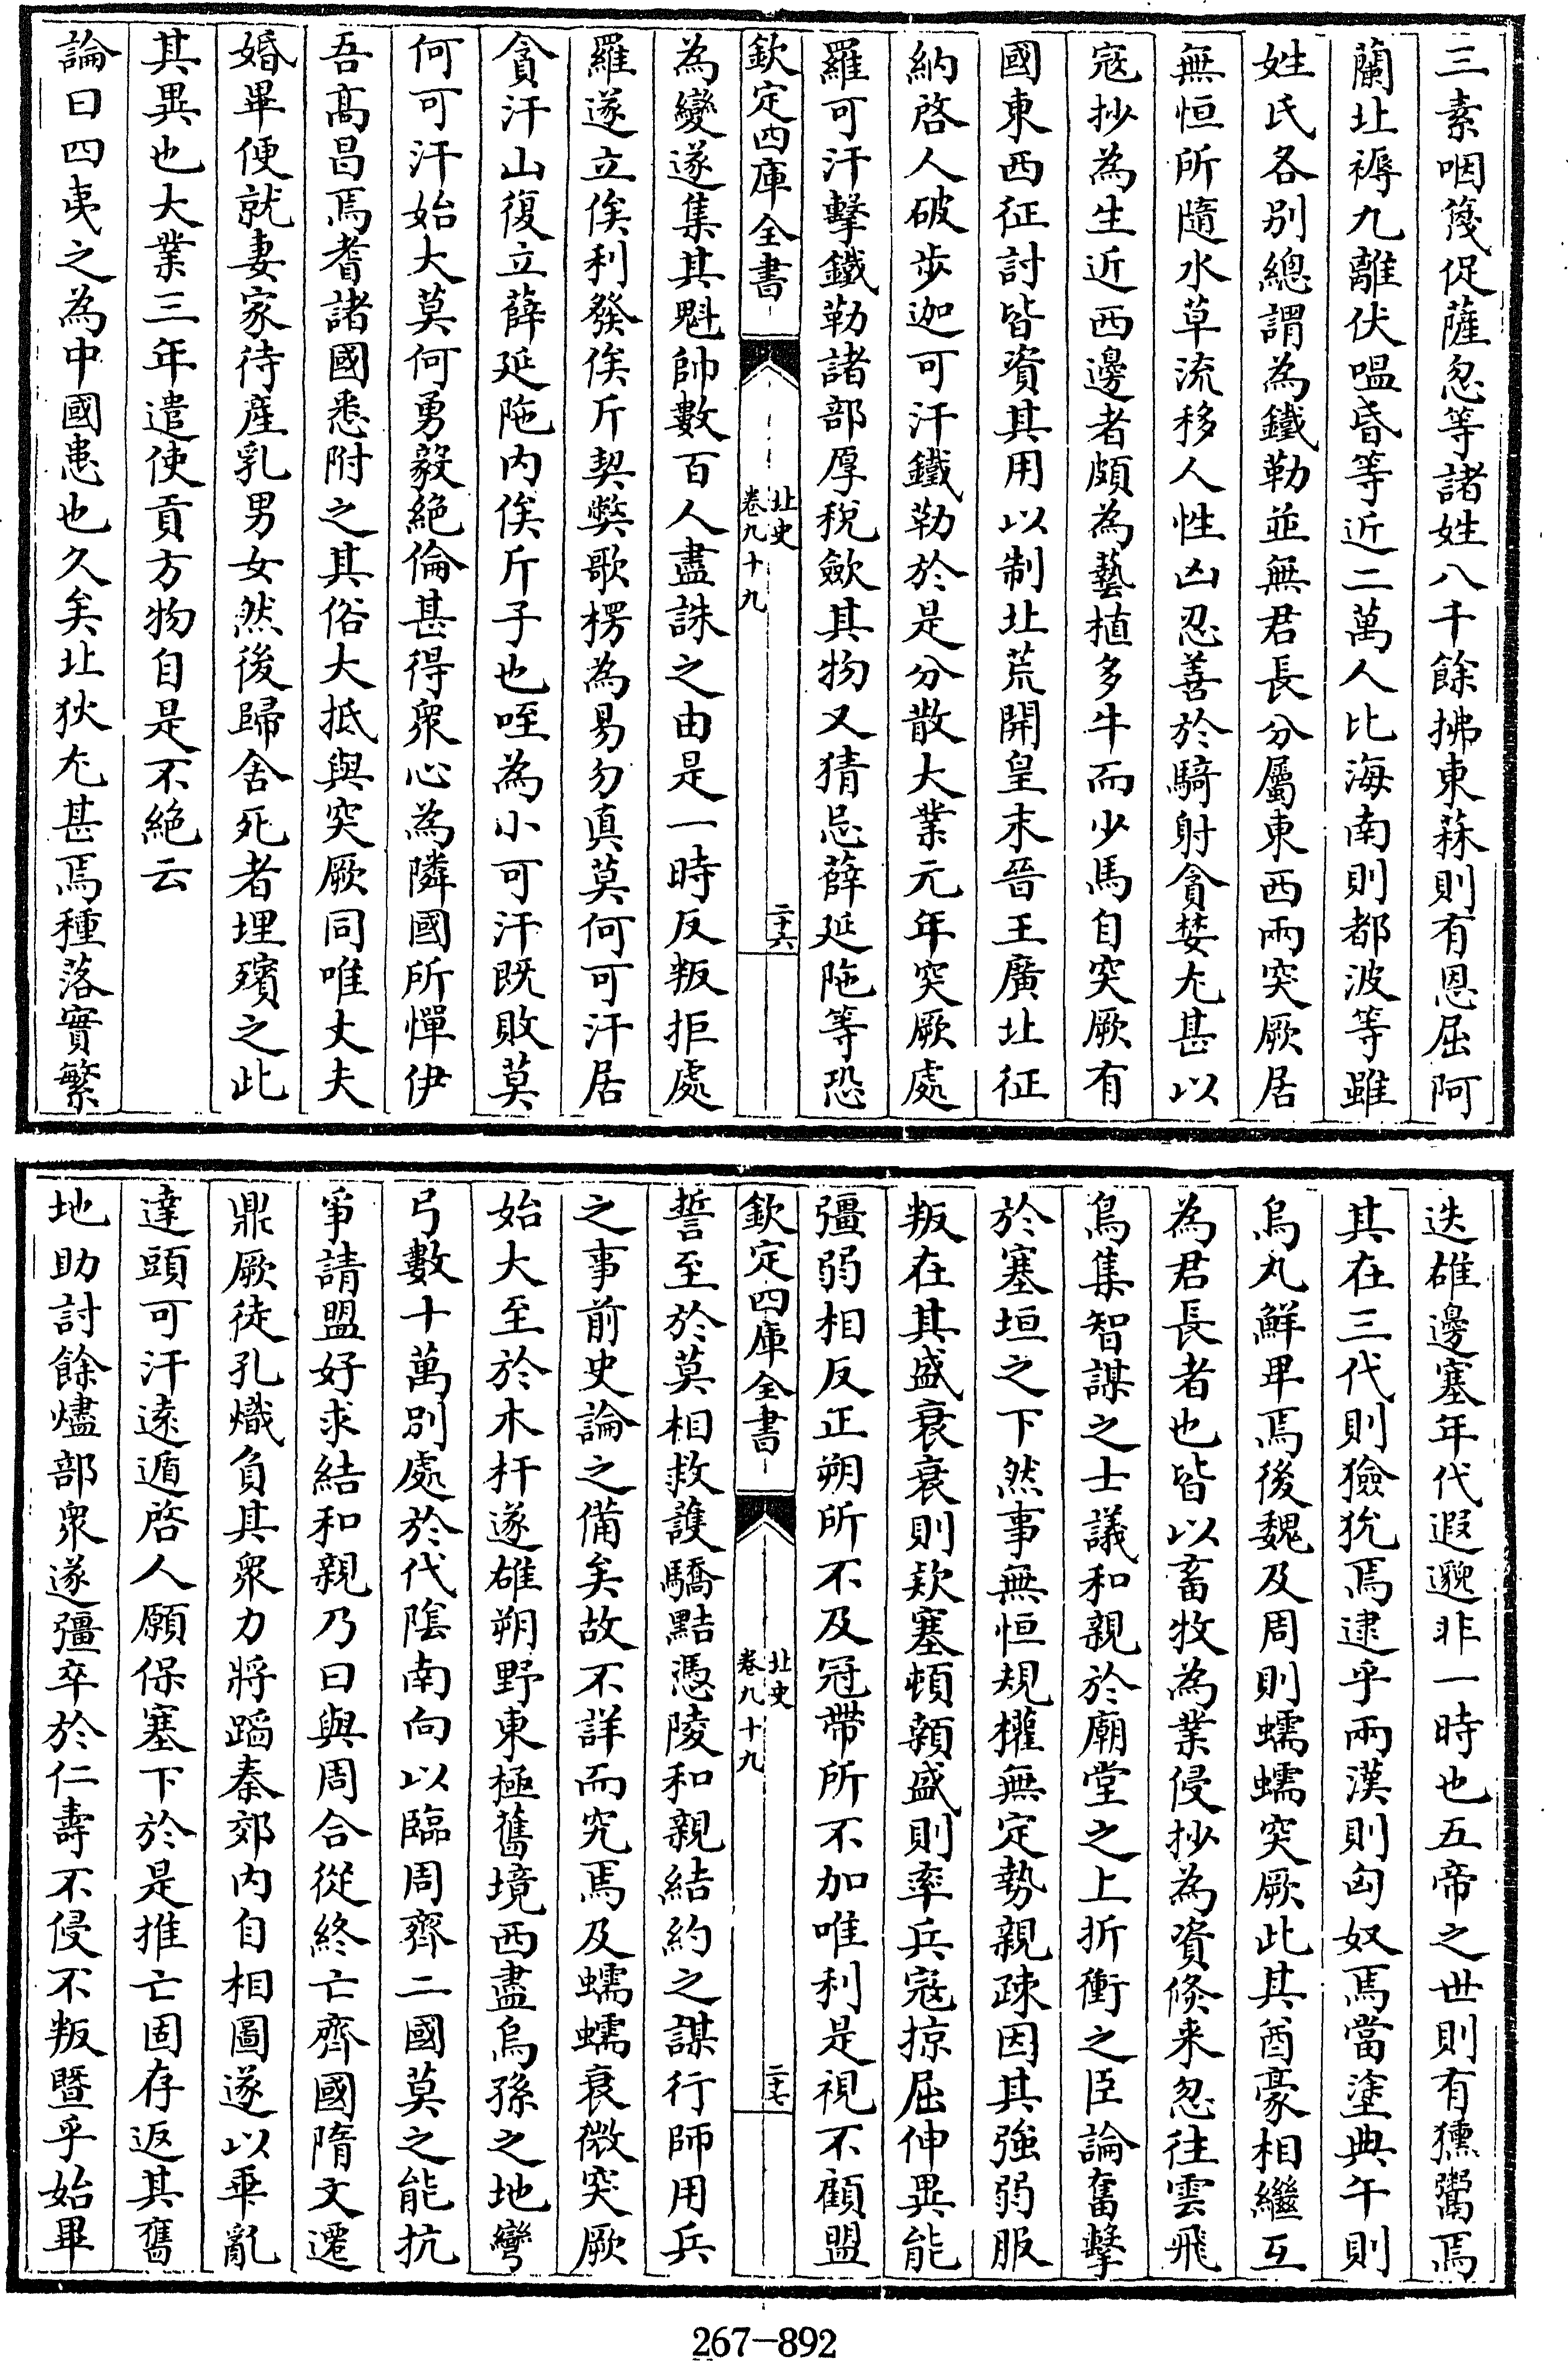 三素咽篾促薩忽等諸姓八千餘拂東菻則有恩屈阿
蘭北褥九離伏嗢昏等近二萬人比海南則都波等雖
姓氏各別總謂為鐵勒並無君長分屬東西兩突厥居
無恒所隨水草流移人性凶忍善於騎射貪婪尤甚以
寇抄為生近西邊者頗為藝植多牛而少馬自突厥有
國東西征討皆資其用以制北荒開皇末晉王廣北征
納啓人破步迦可汗鐵勒於是分散大業元年突厥處
羅可汗擊鐵勒諸部厚稅斂其物又猜忌薛延陁等恐
欽定四庫全書
北史
卷九十九
二十六
為變遂集其魁帥數百人盡誅之由是一時反叛拒處
羅遂立俟利發俟斤契弊歌楞為易勿真莫何可汗居
貪汗山復立薛延陁內俟斤子也咥為小可汗既敗莫
何可汗始大莫何勇毅絕倫甚得衆心為隣國所憚伊
吾高昌焉耆諸國悉附之其俗大抵與突厥同唯丈夫
婚畢便就妻家待產乳男女然後歸舍死者埋殯之此
其異也大業三年遣使貢方物自是不絕云
論曰四夷之為中國患也久矣北狄尤甚焉種落實繁
迭雄邊塞年代遐邈非一時也五帝之世則有獯鬻焉
其在三代則獫狁焉逮乎兩漢則匈奴焉當塗典午則
烏丸鮮卑焉後魏及周則蠕蠕突厥此其酋豪相繼互
為君長者也皆以畜牧為業侵抄為資倏来忽往雲飛
鳥集智謀之士議和親於廟堂之上折衝之臣論奮擊
於塞垣之下然事無恒規權無定勢親疎因其強弱服
叛在其盛衰衰則欵塞頓顙盛則率兵寇掠屈伸異能
彊弱相反正朔所不及冠帶所不加唯利是視不顧盟
欽定四庫全書
北史
卷九十九
二十七
誓至於莫相救護驕黠憑陵和親結約之謀行師用兵
之事前史論之備矣故不詳而究焉及蠕蠕衰微突厥
始大至於木杆遂雄朔野東極舊境西盡烏孫之地彎
弓數十萬別處於代陰南向以臨周齊二國莫之能抗
爭請盟好求結和親乃曰與周合從終亡齊國隋文遷
鼎厥徒孔熾負其衆力將蹈秦郊內自相圖遂以乖亂
達頭可汗遠遁啓人願保塞下於是推亡固存返其舊
地助討餘燼部衆遂彊卒於仁壽不侵不叛暨乎始畢
267-892